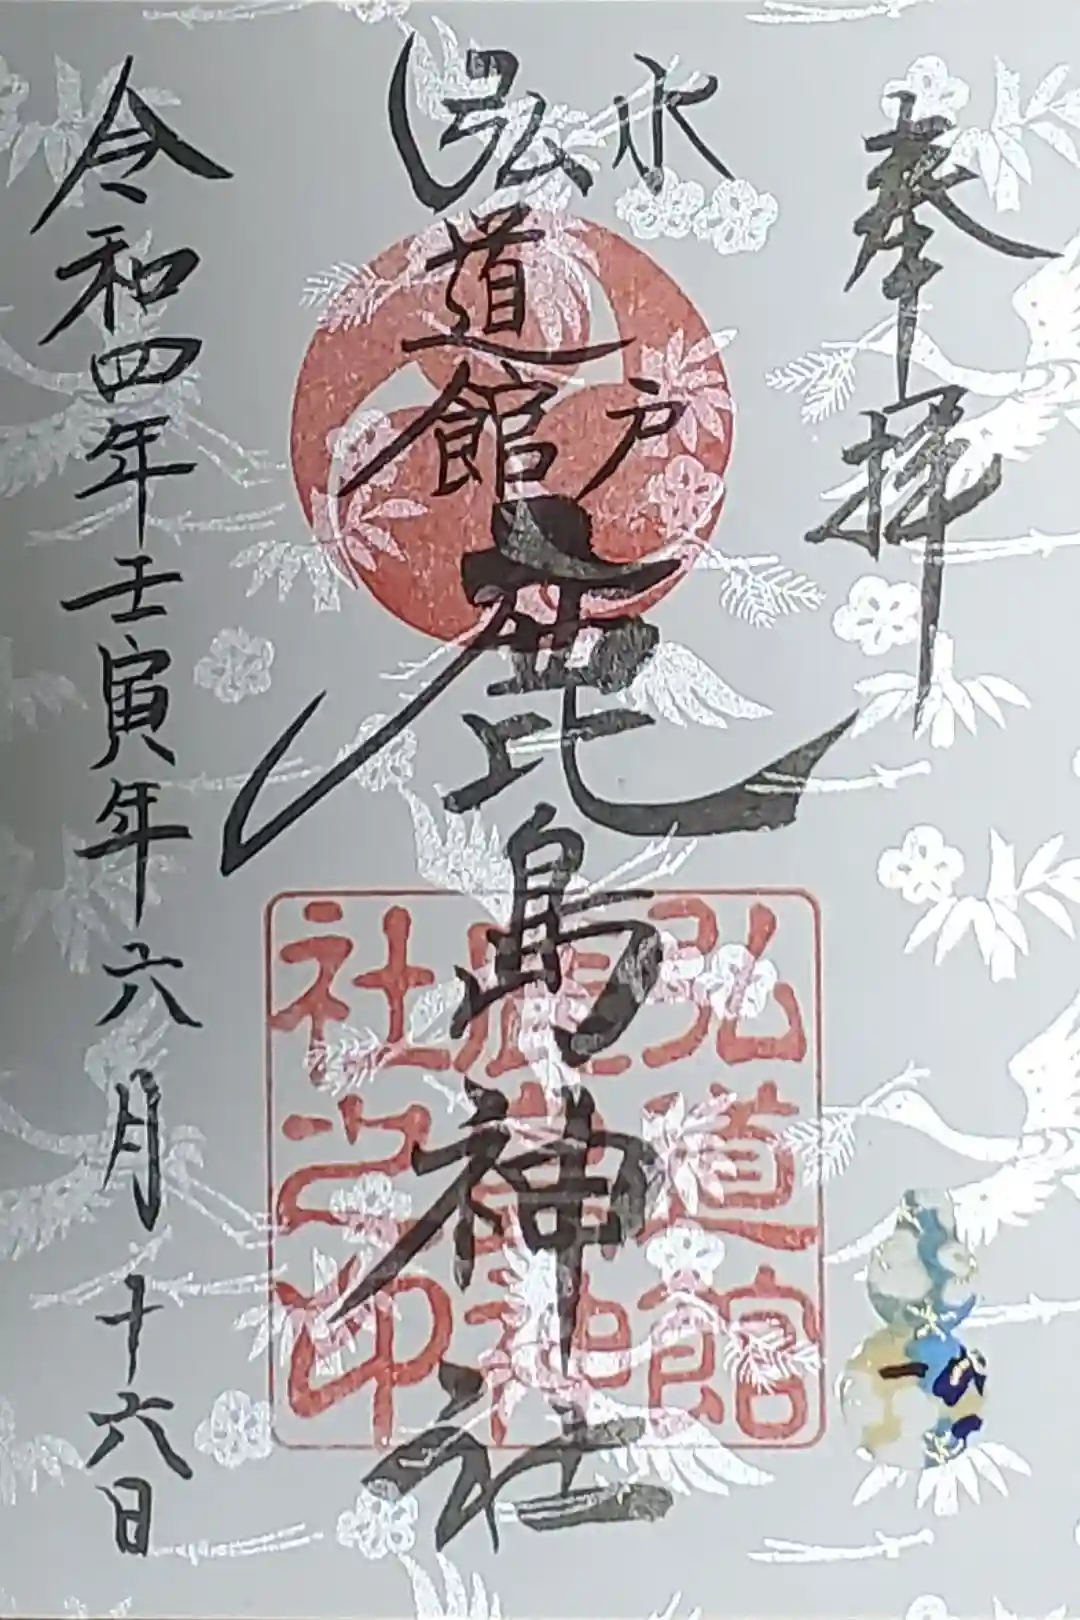 奉拝
水戸
弘道館
鹿島神社
弘道館
鹿島神
社之印
令和四年壬寅年六月十六日